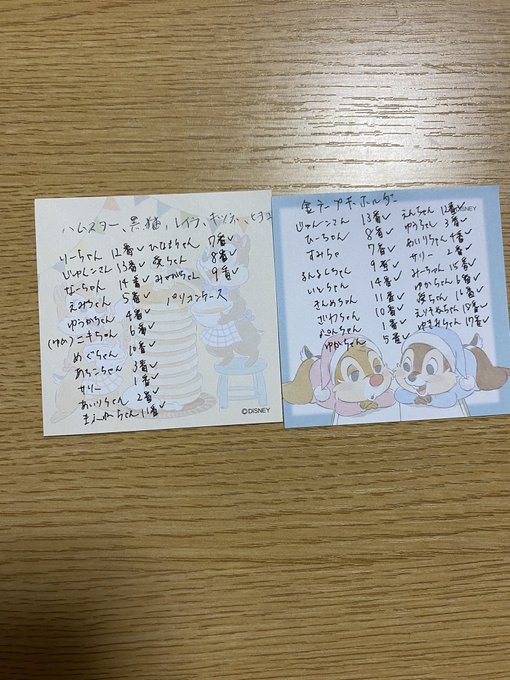 ハムスター、黒猫、レイヤ、ボリボ、ヒヨコ
りーちゃん 12番✓ ひなまちゃん 7番✓
じゅんこさん 13番✓ 葵ちゃん 8番✓
なーちゃん 14番✓ みやびちゃん 9番✓
えみちゃん 5番✓ パソコンケース
ゆうかちゃん 4番✓
ニキちゃん 6番✓
めぐちゃん 10番✓
あちこちゃん 3番✓
サリー 1番✓
あいりちゃん 2番✓
ちゃん 11番✓
©DISNEY
金テープホルダー
じゅんこさん 13番✓ えんちゃん 12番✓
ひーちゃん 8番✓ ゆうちゃん 3番✓
すみちゃ 7番✓ あいりちゃん 4番✓
るんるんちゃん 9番✓ サリー 2番✓
いしちゃん 14番✓ みーちゃん 15番✓
きんめちゃん 11番✓ ゆかちゃん 6番✓
ざわちゃん 10番✓ 葵ちゃん 16番✓
ぺんちゃん 1番✓ えりそねちゃん 18番✓
ゆかちゃん 5番✓ ゆきみちゃん 17番✓
DISNEY